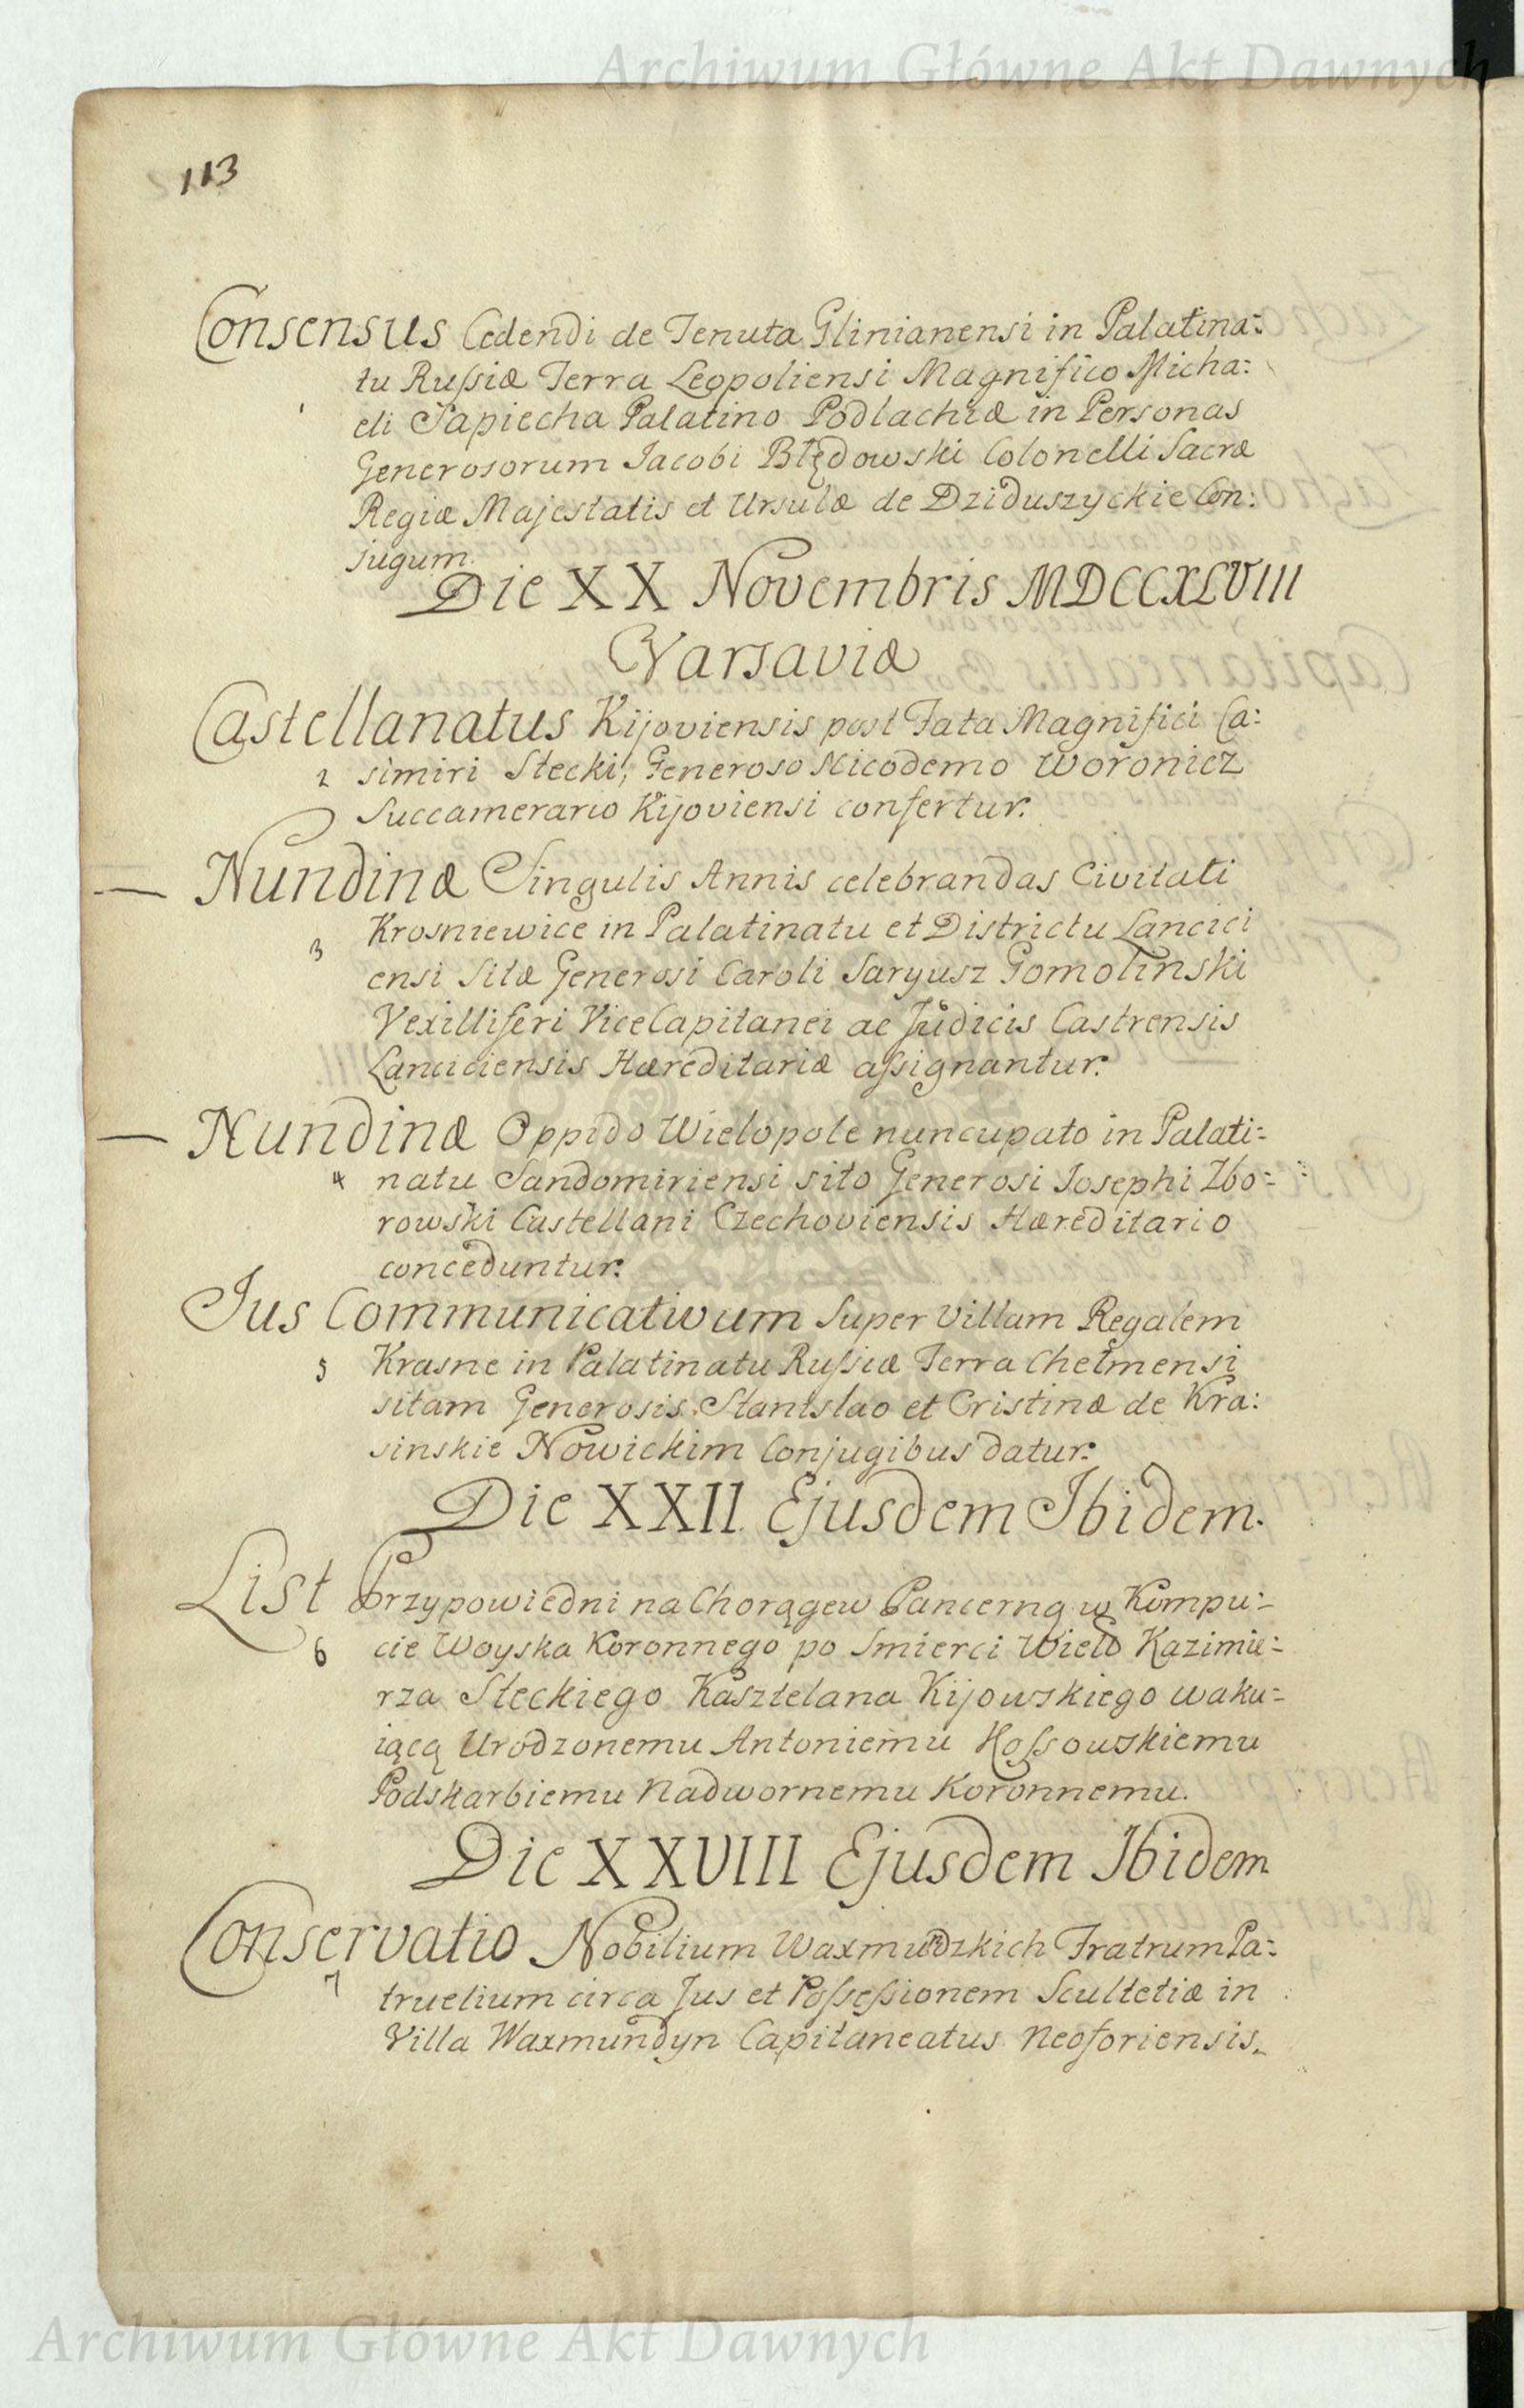 Archiwum Główne Akt Dawnych
113
Consensus Cedendi de Tenuta Glinianensi in Palatina:
tu Russiæ Terra Leopoliensi Magnifico Micha:
1 eli Sapiecha Palatino Podlachiæ in Personas
Generosorum Jacobi Błędowski Colonelli Sacræ
Regiæ Majestatis et Ursulæ de Dziduszyckie Con:
jugum.
Die XX Novembris MDCCXLVIII
Varsaviæ
Castellanatus Kijoviensis post Fata Magnifici Ca:
2 simiri Stecki, Generoso Nicodemo Woronicz
Succamerario Kijoviensi confertur.
— Nundinæ Singulis Annis celebrandas Civitati
3 Krosniewice in Palatinatu et Districtu Lancici
ensi Sitæ Generosi Caroli Saryusz Gomolinski
Vexilliferi ViceCapitanei ac Judicis Castrensis
Lanciciensis Hæreditariæ assignantur.
— Nundinæ Oppido Wielopole nuncupato in Palati:
4 natu Sandomiriensi sito Generosi Josephi Zbo:
rowski Castellani Czechoviensis Hæreditario
conceduntur.
Jus Communicativum Super Villam Regalem
5 Krasne in Palatinatu Russiæ Terra Chełmensi
sitam Generosis Stanislao et Cristinæ de Kra:
sinskie Nowickim Conjugibus datur.
Die XXII Ejusdem Ibidem.
List Przypowiedni na Chorągew Pancerną w Kompu:
6 cie Woyska Koronnego po Smierci Wielo Kazimie:
rza Steckiego Kasztelana Kijowskiego waku:
iącą Urodzonemu Antoniemu Kossowskiemu
Podskarbiemu Nadwornemu Koronnemu.
Die XXVIII Ejusdem Ibidem
Conservatio Nobilium Waxmundzkich Fratrum Pa:
7 truelium circa Jus et Possessionem Scultetiæ in
Villa Waxmundyn Capitaneatus Neoforiensis.
Archiwum Główne Akt Dawnych